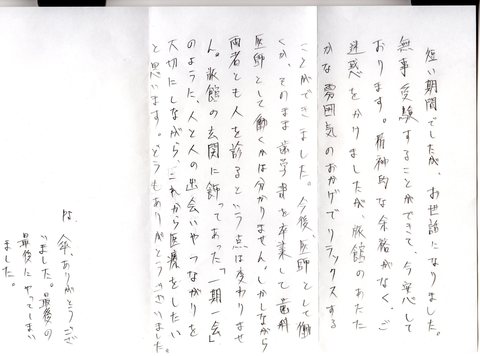 短い期間でしたが、お世話になりました。
無事受験することができて、今安心して
おります。精神的な余裕がなく、ご
迷惑をかけましたが、旅館のあたた
かな雰囲気のおかげでリラックスする
ことができました。今後、医師として働
くか、そのまま歯学書を卒業して歯科
医師として働くかは分かりません。しかしながら
両者とも人を診るという点は変わりませ
ん。旅館の玄関に飾ってあった「一期一会」
のように、人と人の出会いやつながりを
大切にしながら、これから医療をしたい
と思います。どうもありがとうございました。
P.S. 傘、ありがとうござ
いました。最後の
最後にやってしまい
ました。